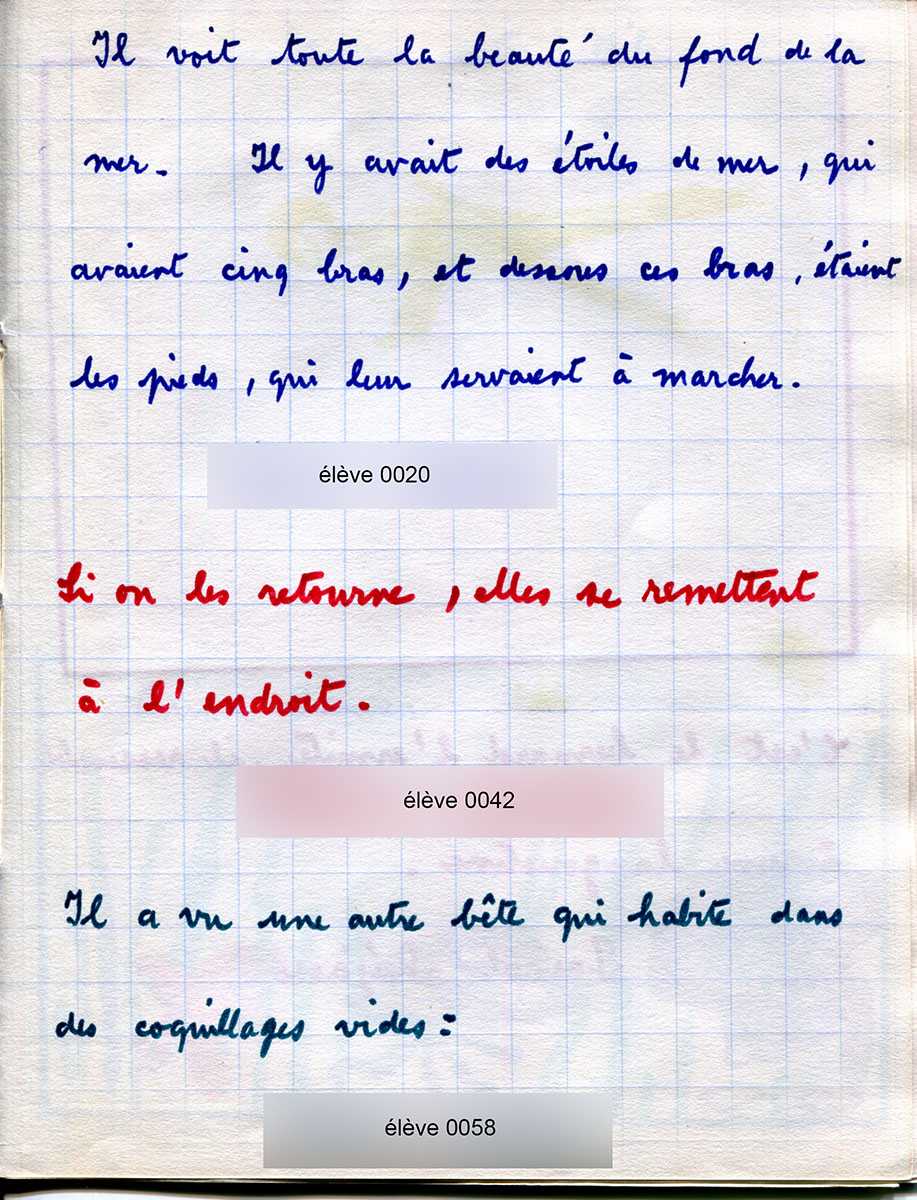 Il voit toute la beauté du fond de la
mer. Il y avait des étoiles de mer, qui
avaient cinq bras, et dessous ces bras, étaient
les pieds, qui leur servaient à marcher.
élève 0020
Si on les retourne, elles se remettent
à l'endroit.
élève 0042
Il a vu une autre bête qui habite dans
des coquillages vides :
élève 0058